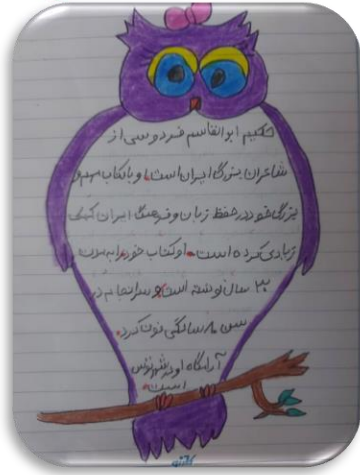 حکیم ابوالقاسم فردوسی از
شاعران بزرگ ایران است. او با کتاب مهم و
بزرگ خود در حفظ زبان و فرهنگ ایران کمک
زیادی کرده است. او کتاب خود را به مدت
۳۰ سال نوشته است و سرانجام در
سن سالگی فوت کرد.
آرامگاه او در شهر توس
است.